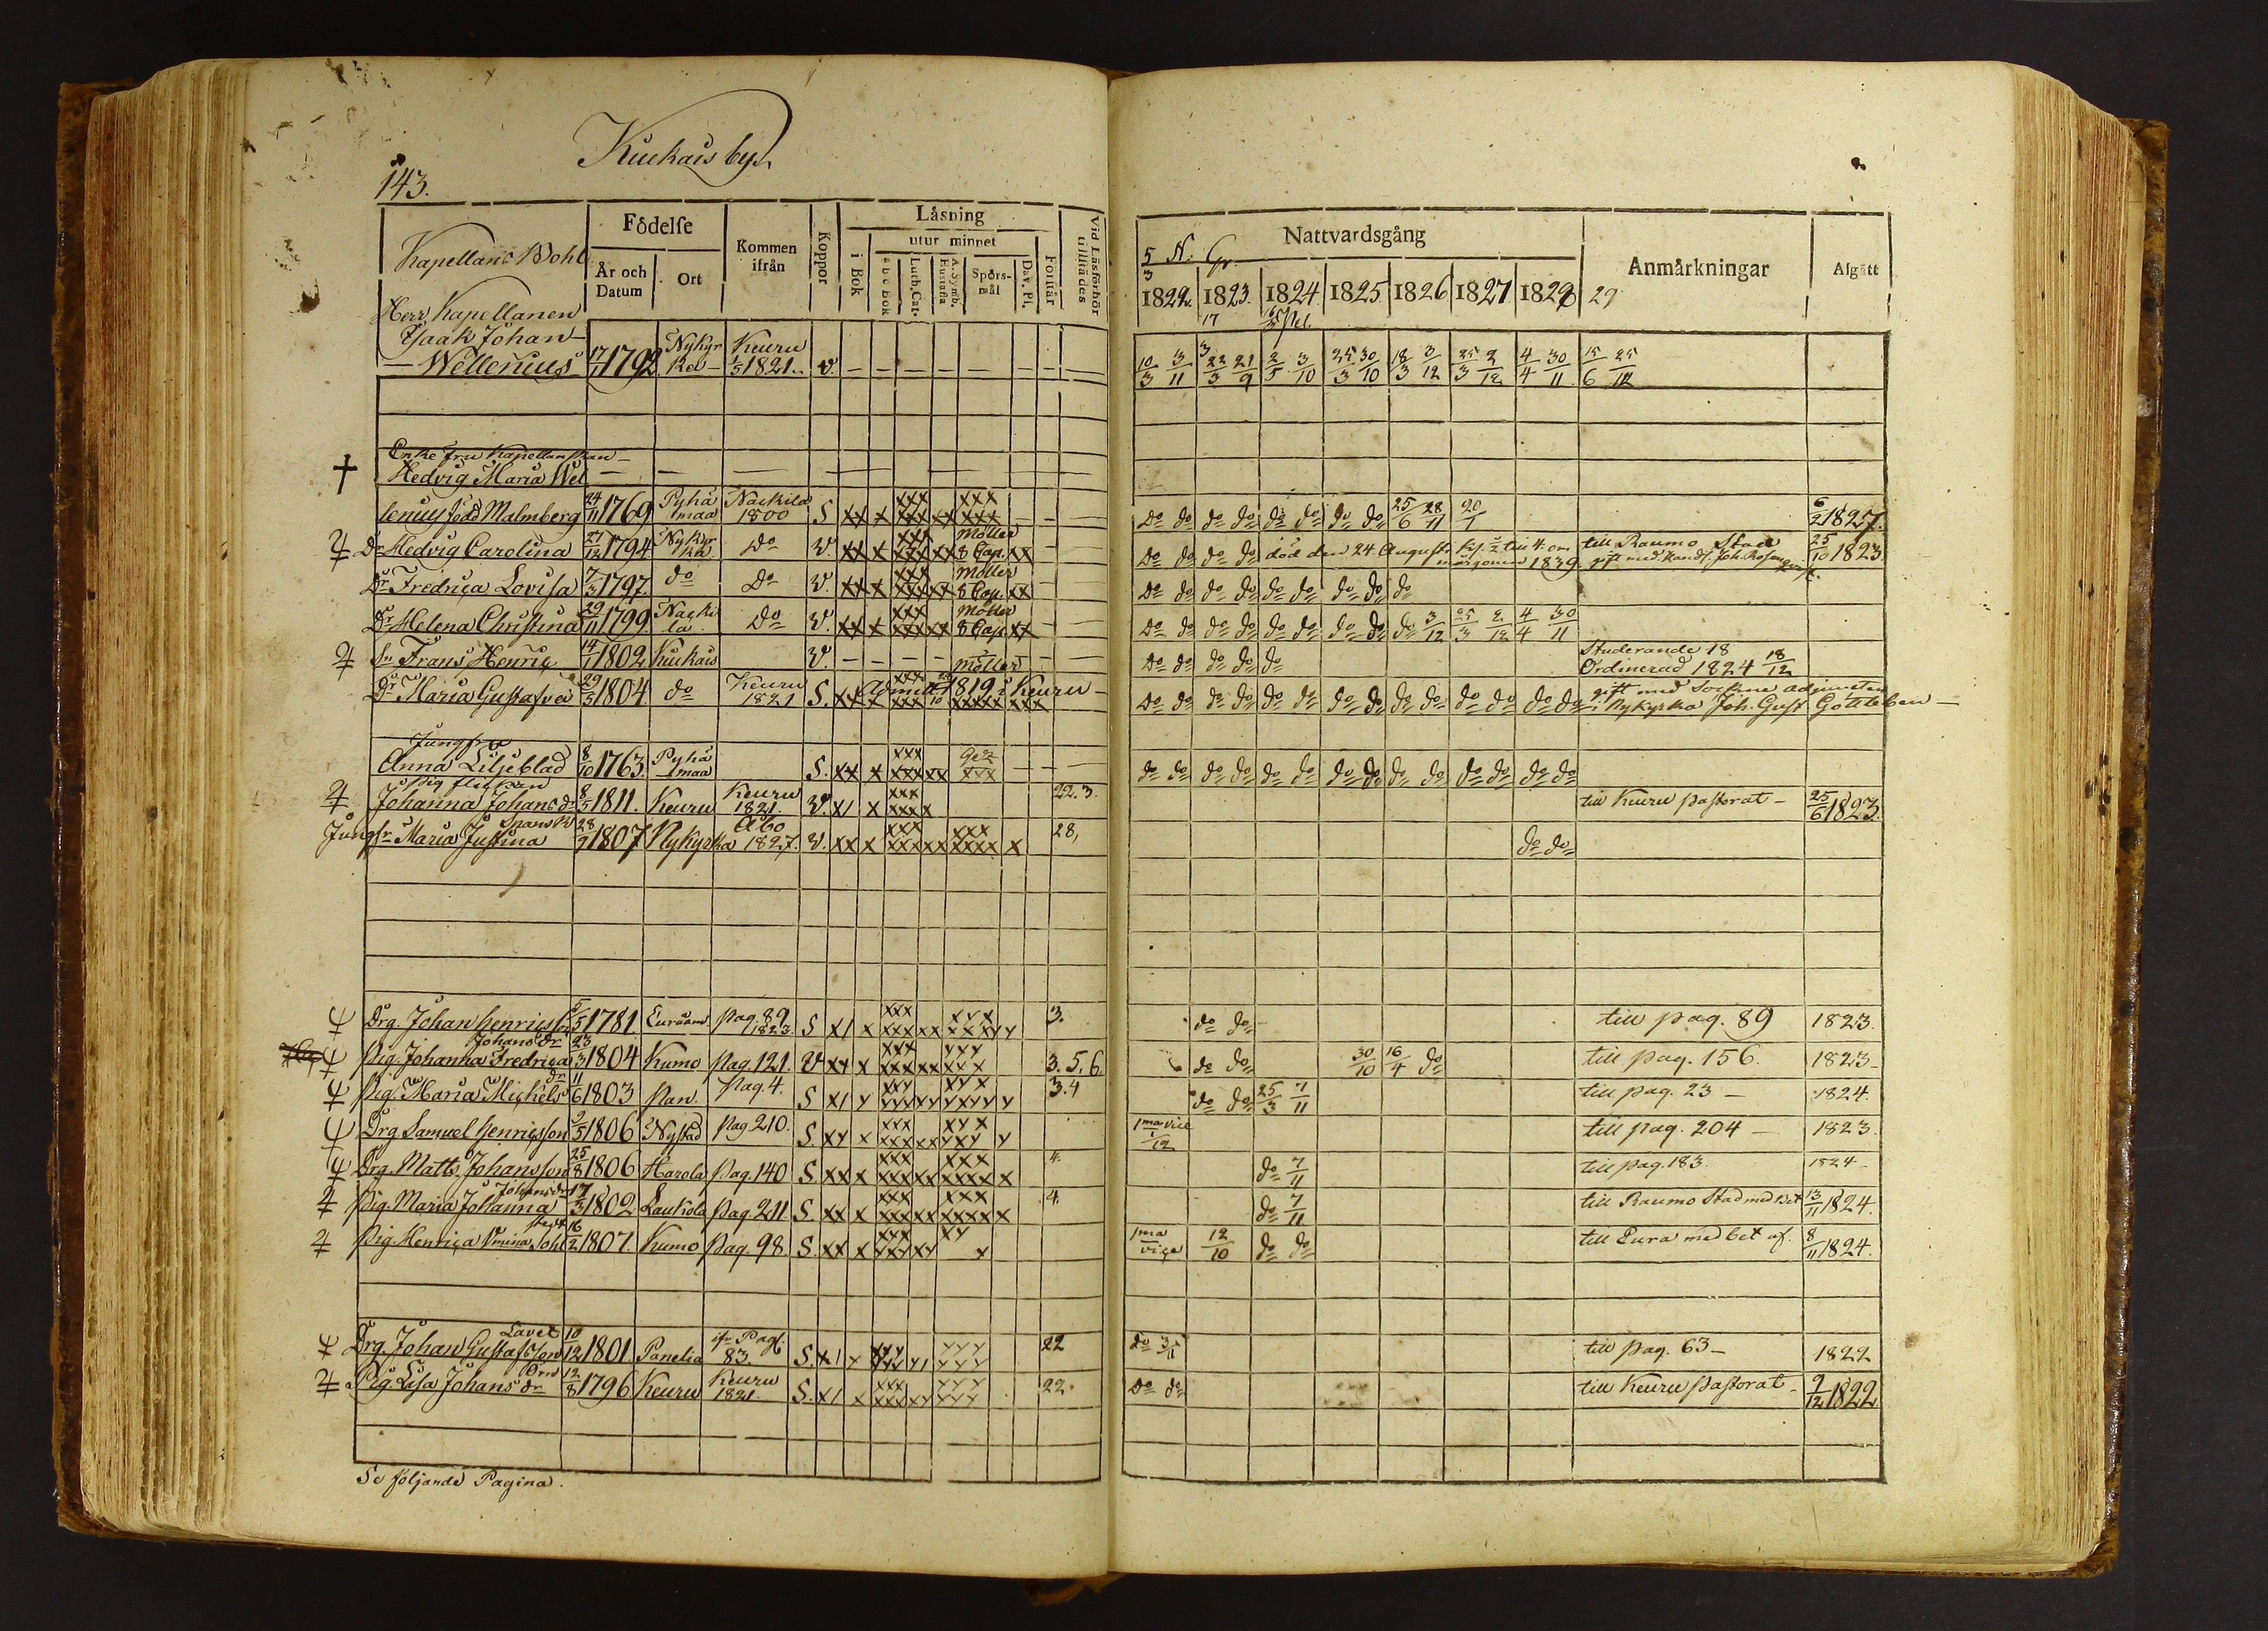 Kiukais by.
143.
Kapellans Bohl
Födelse
År och Datum
Ort
Kommen ifrån
Koppor
Läsning
i Bok
utur minnet
a b c Bok
Luth. Cat.
A. Symb. Hustafla
Spörsmål
Dav. Ps.
Förstår
Vid Läsförhör tillstädes
5 N. Gr.
Nattvardsgång
1822 1823. 1824 1825 1826 1827 1828 29
Anmärkningar
Afgått
Herr Kapellanen
Isaak Johan
Wellenius 17/1 1792 Nykyrka Keuru 1/5 1821. V.
10/3 3/11 22/3 21/9 2/5 3/10 25/3 30/10 18/3 3/12 25/3 2/12 4/4 30/11 15/6 25/12
Enke fru Kapellanskan
Hedvig Maria Wel
lenius född Malmberg 24/11 1769 Pyhämaa Nackila 1800 S xx x xxx xxx xx xxx xxx
Do do do do do do do do 25/6 28/11 20/1 6/2 1827.
Dr Hedvig Carolina 27/12 1794 Nykyrka Do V. xx x xxx xxx xx Möller 8 Cap. xx
Do do do do död den 24 Augusti till Raumo Stad 25/10 1823
morgonen 1839. gift med Handl. Joh.
Dr Fredrica Lovisa 7/3 1797. do Do V. xx x xxx xxx xx Möller 8 Cap. xx
Do do do do do do do do do
Dr Helena Christina 29/11 1799 Nackila do V. xx x xxx xxx xx Möller 8 Cap. xx
Do do do do do do do do do 3/12 25/3 2/12 4/4 30/11
Sn Frans Henric 14/1 1802 Kiukais V.
Do do do do do Studerande 18
Ordinerad 1824 18/12
Dr Maria Gustafva 29/5 1804. do Keuru 1821 S. Möller 1819 i Keuru
Do do do do do do do do do do do do do do gift med Sockne adjuncten
i Nykyrka Joh. Gust. Gottleben
Jungfru
Anna Liljeblad 8/10 1763. Pyhämaa S. xx x xxx xxx xx xxx
do do do do do do do do do do do do do do
Pig flickan
Johanna Johans dr 8/5 1811. Keuru Keuru 1821. V. x1 x xxx xxxx 22.3.
till Keuru pastorat 25/6 1823.
Jungfr Maria Justina 28/9 1807 Nykyrka Åbo 1827. V. xx x xxx xxx xx xxx xxxx x 28,
do do
Drg. Johan Henricsson 5/5 1781 Euraåm. pag. 89 1823. S x1 x xxx xxx xx xxx xxxxx 3.
do do till pag. 89 1823.
Pig. Johanna Fredrica Johans dr 23/3 1804 Kumo pag. 121. V xx x xxx xxx xx xxx xxx 3. 5. 6
do do 30/10 16/4 do till pag. 156. 1823
Pig. Maria Michels dr 11/6 1803 Pan. pag. 4. S x1 x xxx xxx xx xxx xxxx x 3.4
do do 25/3 7/11 till pag. 23 1824.
Drg Samuel Henricsson 5/5 1806 Nystad pag 210. S. xx x xxx xxx xx xxx xxx x
1ma vice 1/12 till pag. 204 1823.
Drg. Matts Johansson 25/8 1806 Harola pag. 140 S. xx x xxx xxx xx xxx xxxx x 4.
do 7/11 till pag. 183. 1824
Pig. Maria Johanna Johans dr 17/3 1802 Lautiola pag. 211. S. xx x xxx xxx xx xxx xxxx x 4.
do 7/11 till Raumo Stad med Bet 13/11 1824.
Pig. Henrica 16/2 1807. Kumo pag. 98. S. xx x xxx xxx xx xx x
1ma vice 12/10 do do till Eura med bet af. 8/11 1824.
Drg. Johan Gustafsson 10/12 1801 Panelia ifr Pag. 83. S. x1 x xxx xxx x1 xxx xxx 22
do 3/11 till pag. 63 1822
Pig. Lisa Johans dr 12/8 1796 Keuru Keuru 1821. S. x1 x xxx xxx xx xxx xxx 22.
Do do till Keuru pastorat 2/12 1822.
Se följande Pagina.